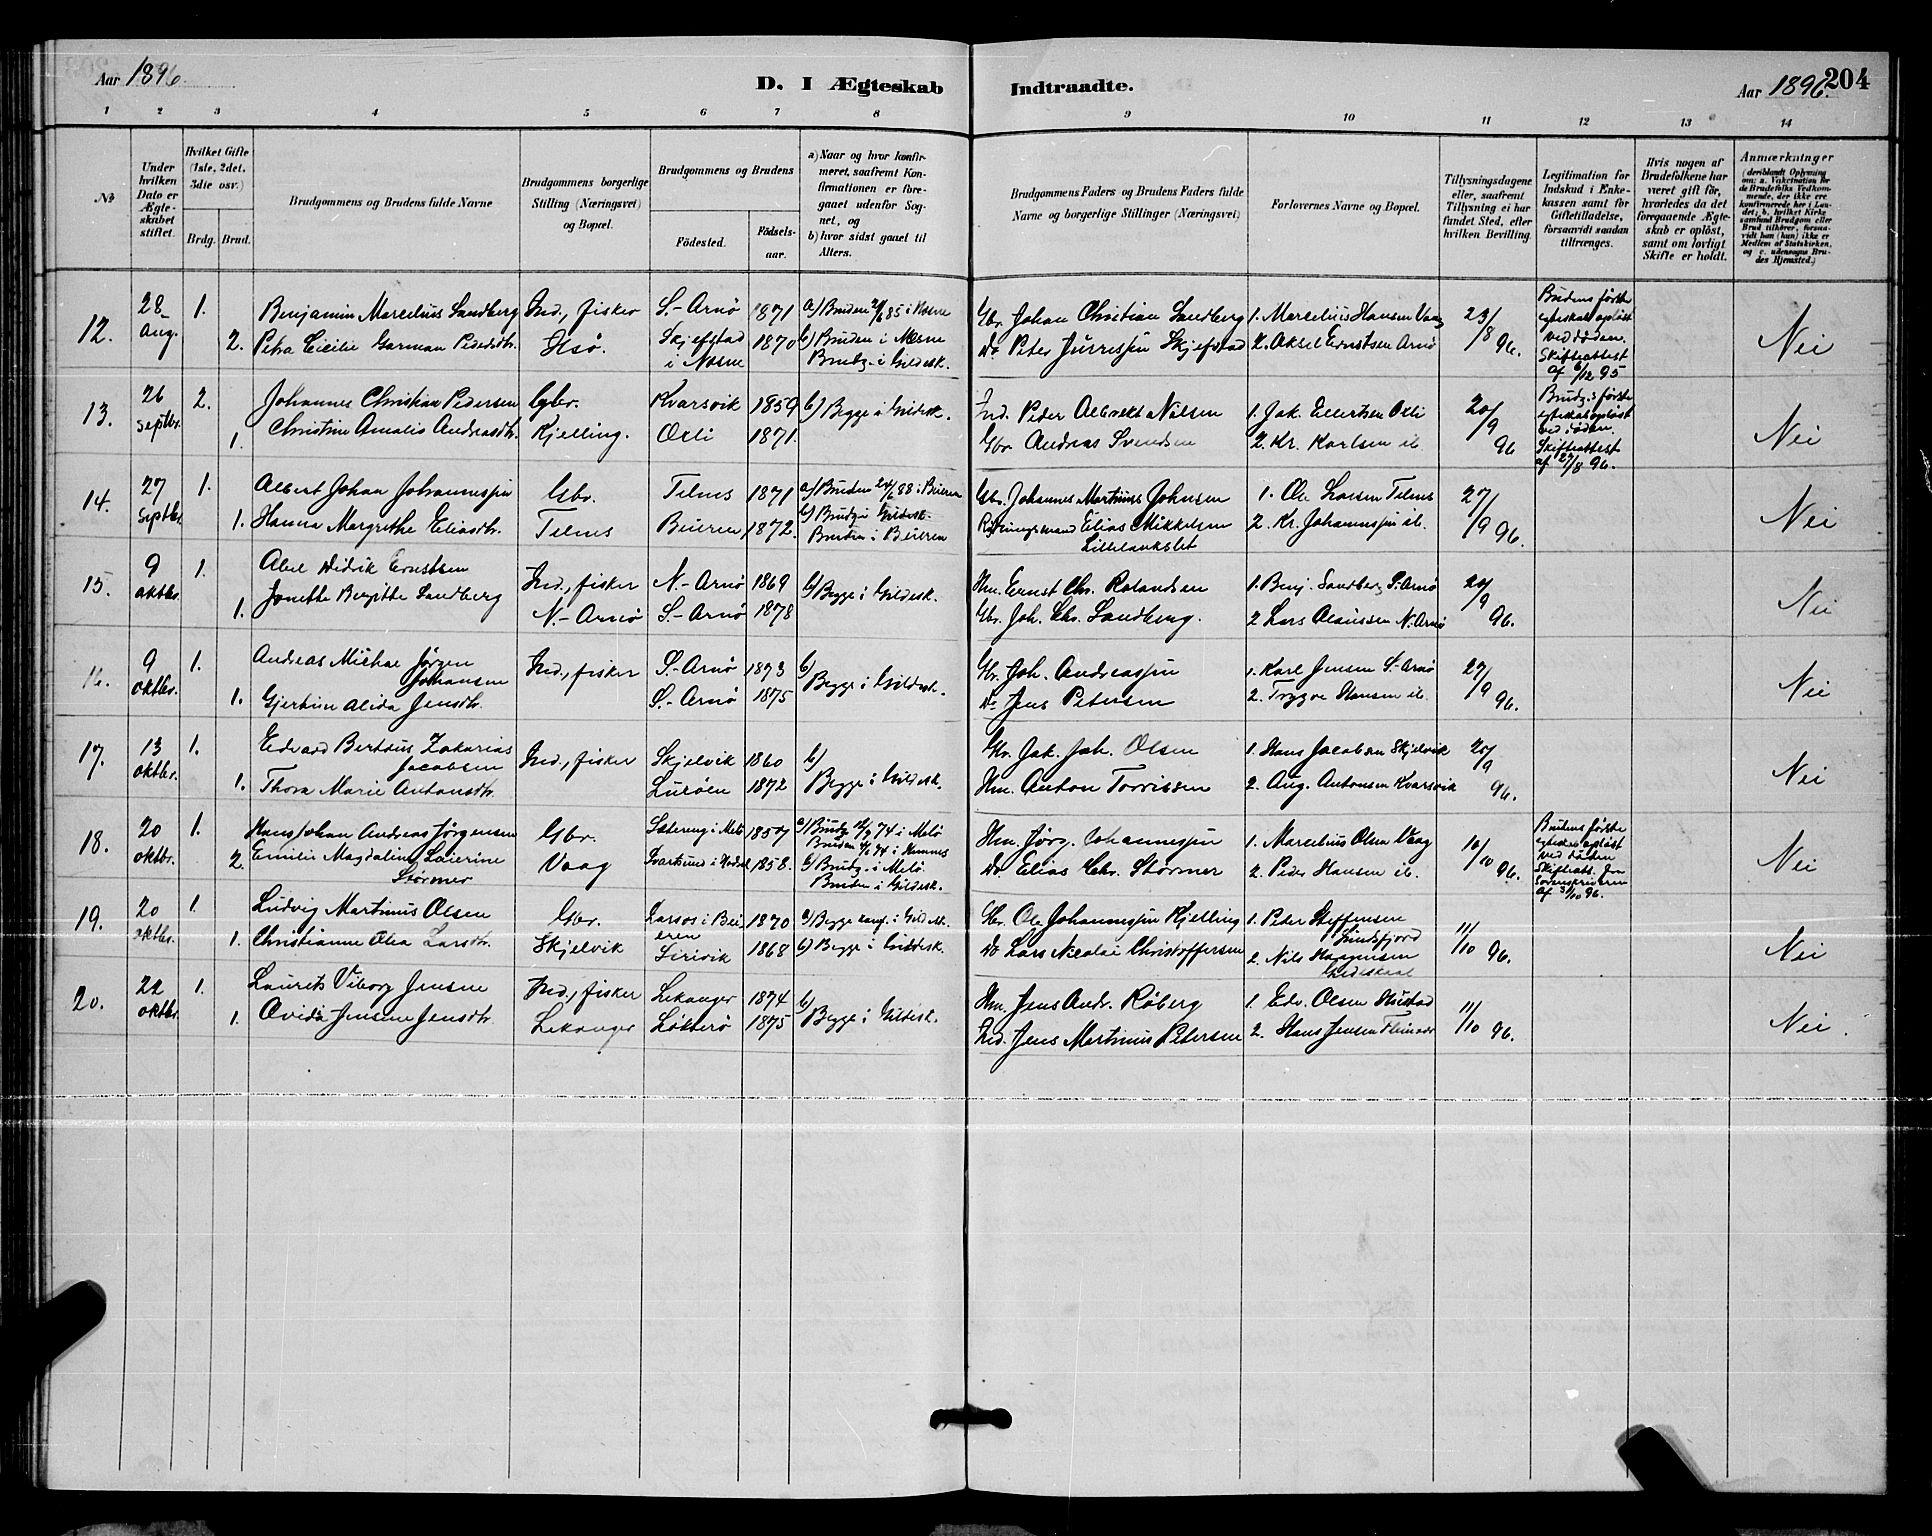 Aar 1896.
D. I Ægteskab Indtraadte.
Aar 1896. 204
1 2 3 4 5 6 7 8 9 10 11 12 13 14
No
Under hvilken Dato er Ægteskabet stiftet.
Hvilket Gifte (1ste, 2det, 3die osv.)
Brdg. Brud.
Brudgommens og Brudens fulde Navne
Brudgommens borgerlige Stilling (Næringsvei) og Bopæl.
Brudgommens og Brudens
Fødested.
Fødselsaar.
a) Naar og hvor konfirmeret, saafremt Konfirmationen er foregaaet udenfor Sognet, og
b) hvor sidst gaaet til Alters.
Brudgommens Faders og Brudens Faders fulde Navne og borgerlige Stillinger (Næringsvei)
Forlovernes Navne og Bopæl.
Tillysningsdagene eller, saafremt Tillysning ei har fundet Sted, efter hvilken Bevilling.
Legitimation for Indskud i Enkekassen samt for Giftetilladelse, forsaavidt saadan tiltrænges.
Hvis nogen af Brudefolkene har været gift før, hvorledes da det foregaaende Ægteskab er opløst, samt om lovligt Skifte er holdt.
Anmærkninger (deriblandt Oplysning om: a. Vakcination for de Brudefolks Vedkommende, der ikke ere konfirmerede her i Landet; b. hvilket Kirkesamfund Brudgom eller Brud tilhører, forsaavidt han (hun) ikke er Medlem af Statskirken, og c. udensogns Brudes Hjemsted.)
12. 28 Aug. 1. Benjamin Marcelius Sandberg Ind., fisker S.-Arnø 1871 a) Bruden 2/6 85 i Nesne Gbr. Johan Christian Sandberg 1. Marcelius Hansen Vaag 23/8 96. Brudens første egteskab opløst ved døden. Skifteattest af 6/12 95 Nei
2. Petra Cicilie Garman Pedersdtr. Skjefstad i Nesne 1870 b) Bruden i Nesne Brudg. i Gildesk. Do Peter Jurresen Skjefstad 2. Aksel Ernstsen Arnø
13. 26 septbr. 2. Johannes Christian Pedersen Gbr. Kvarsvik 1859 b) Begge i Gildesk. Ind. Peder Albrekt Nilsen 1. Jak. Ellertsen Oxli 20/9 96 Brudg.s første egteskab opløst ved døden. Skifteattest af 27/8 96. Nei
1. Christine Amalie Andreasdtr. Kjelling. Oxli 1871. Gbr. Andreas Svendsen 2. Kr. Karlsen ib.
14. 27 septbr. 1. Albert Johan Johannessen Gbr. Telnes 1871 a) Bruden 24/6 88 i Beieren Gbr. Johannes Martinus Johnsen 1. Ole Larsen Telnes 27/9 96. Nei
1. Hanna Margrethe Eliasdtr. Telnes Beieren 1872. b) Brudg. i Gildesk. Bruden i Beieren Elias Mikkelsen 2. Kr. Johannessen ib.
15. 9 oktbr. 1. Abel Didrik Ernstsen Ind., fisker N.-Arnø 1869 b) Begge i Gildesk. Hm. Ernst Chr. Rolandsen 1. Benj. Sandberg S. Arnø 20/9 96. Nei
1. Jonette Bergitte Sandberg N.-Arnø S.-Arnø 1878 Gbr. Joh. Chr. Sandberg. 2 Lars Olaussen N. Arnø
16. 9 oktbr. 1. Andreas Michae Jørgen Johansen Ind., fisker S.-Arnø 1873 b) Begge i Gildesk. Gbr. Joh. Andreassen 1. Karl Jensen S.-Arnø 27/9 96. Nei
1. Gjertine Alida Jensdtr. S.-Arnø 1875 Do Jens Petersen 2. Trygve Hansen ib.
17. 13 oktbr. 1. Edvard Bertous Zakarias Jacobsen Ind., fisker Skjelvik 1860 b) Begge i Gildesk. Gbr. Jak. Joh. Olsen 1. Hans Jacobsen Skjelvik 20/9 96. Nei
1. Thora Marie Antonsdtr. Lurøen 1872 Hm. Anton Torrissen 2. Aug. Antonsen Kvarsvik
18. 20 oktbr. 1. Hans Johan Andreas Jørgensen Gbr. Sætereng i Melø 1857 Hm. Jørg. Johannessen 1. Marcelius Olsen Vaag 10/10 96. Brudens første egteskab opløst ved døden Nei
2. Emilie Magdalina Laierine Størmer Vaag 1858. b) Brudg. i Melø Bruden i Gildesk. Do Elias Chr. Størmer 2. Peder Hansen ib.
19. 20 oktbr. 1. Ludvig Martinus Olsen Gbr. Larsos i Beieren 1870 a) Begge konf. i Gildesk. Gbr. Ole Johannessen Kjelling 1. Peder Steffensen 11/10 96. Nei
1. Christianne Olea Larsdtr. Skjelvik Sirivik 1868 b) Begge i Gildesk. Do Lars Nicolai Christoffersen 2. Nils Magnusen Gildeskaal
20. 22 oktbr. 1. Laurits Viborg Jensen Ind., fisker Lekanger 1874 b) Begge i Gildesk. Hm. Jens Andr. Røberg 1. Edv. Olsen Hustad 11/10 96. Nei.
1. Ovida Jensine Jensdtr. Lekanger Løkterø 1875 Ind. Jens Martinus Petersen 2. Hans Jensen